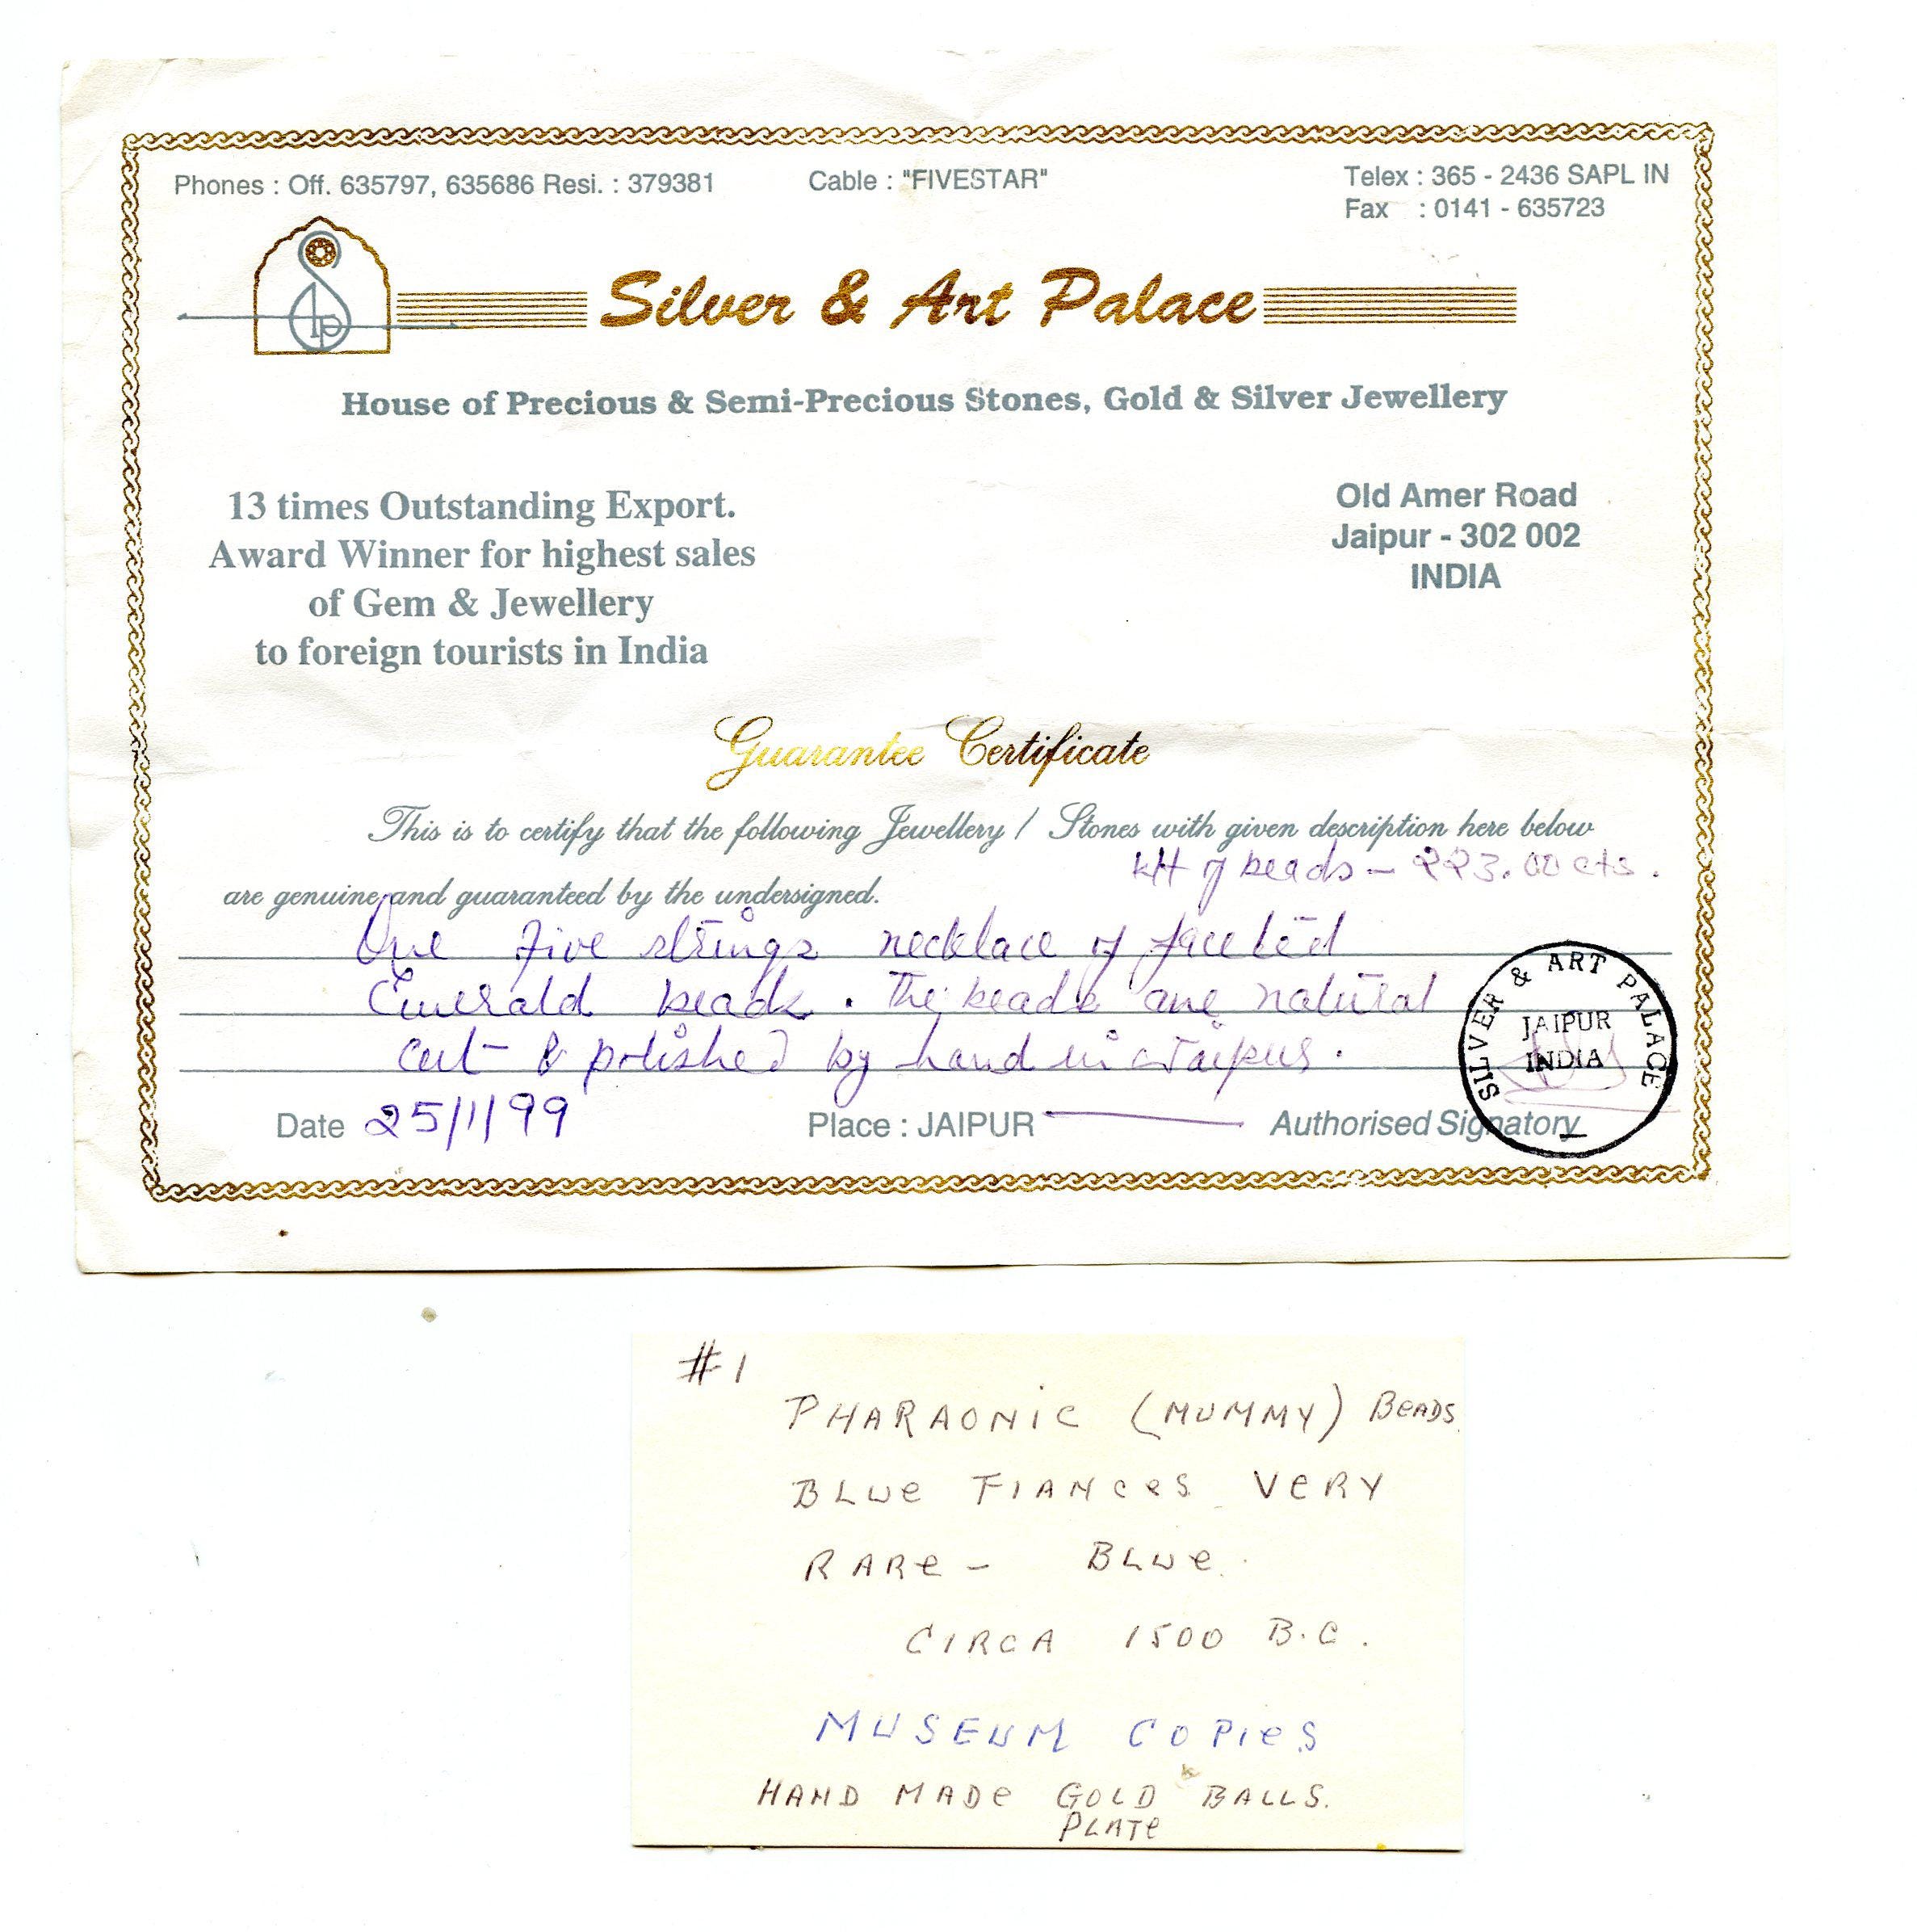 Phones : Off. 635797, 635686 Resi. : 379381
Cable : "FIVESTAR"
Telex : 365 - 2436 SAPL IN
Fax : 0141 - 635723
Silver & Art Palace
House of Precious & Semi-Precious Stones, Gold & Silver Jewellery
13 times Outstanding Export.
Award Winner for highest sales
of Gem & Jewellery
to foreign tourists in India
Old Amer Road
Jaipur - 302 002
INDIA
Guarantee Certificate
This is to certify that the following Jewellery / Stones with given description here below
are genuine and guaranteed by the undersigned.
wt of beads - 223.00 cts.
One five strings necklace of faceted
Emerald beads. The beads are natural
cut & polished by hand in Jaipur.
SILVER & ART PALACE
JAIPUR
INDIA
Date 25/1/99
Place : JAIPUR
Authorised Signatory
#1
PHARAONIC (MUMMY) BEADS
BLUE FIANCES VERY
RARE - BLUE
CIRCA 1500 B.C.
MUSEUM COPIES
HAND MADE GOLD BALLS.
PLATE